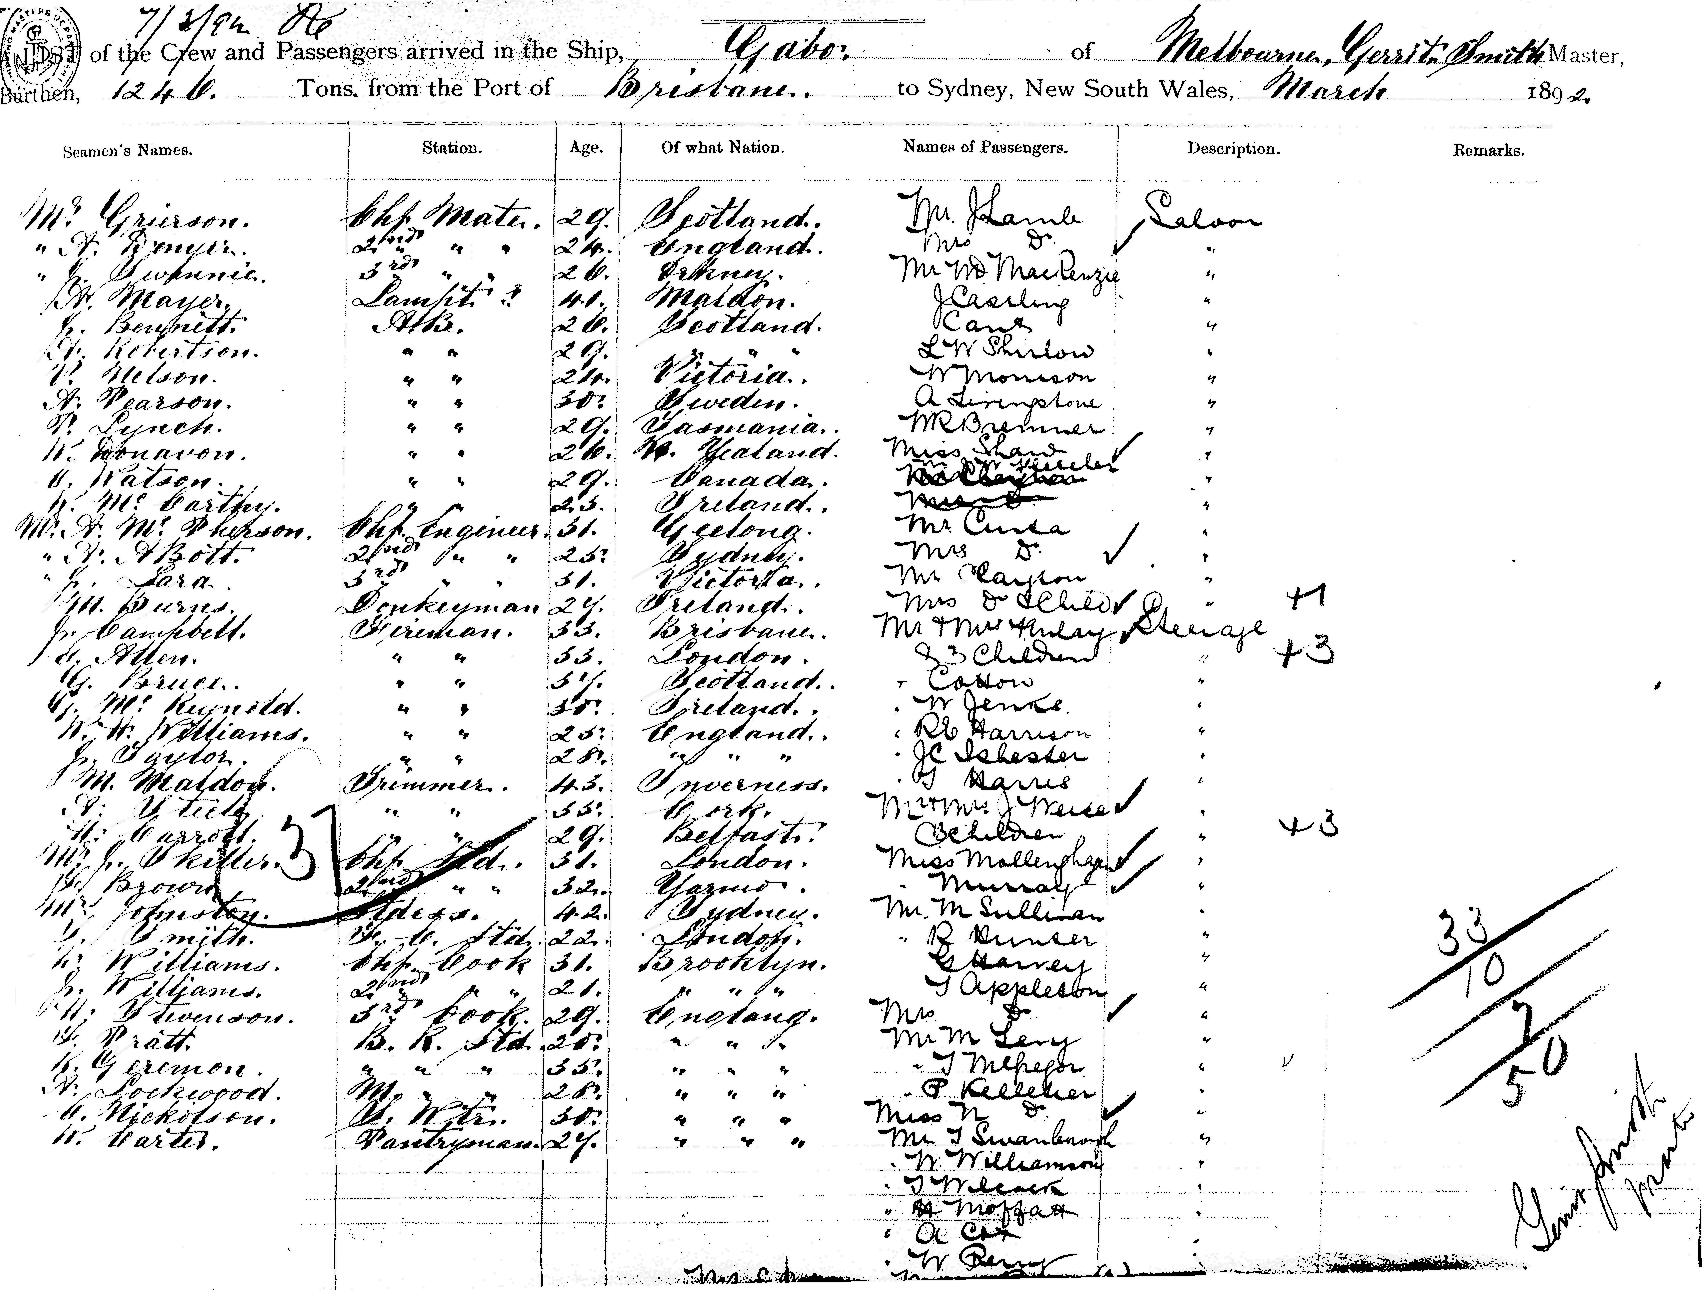 7/3/92
LIST of the Crew and Passengers arrived in the Ship, Gabo. of Melbourne, Gerrit Smith Master,
Burthen, 1246. Tons. from the Port of Brisbane. to Sydney, New South Wales, March 1892.
Seamen's Names. Station. Age. Of what Nation. Names of Passengers. Description. Remarks.
Mr Grierson. Chf. Mate. 29. Scotland. Mr. J Lamb Saloon
" A. Benyer. 2nd " " 24. England. Mrs Do "
" J. Swannie. 3rd " " 26. Orkney. Mr WD MacKenzie "
Mayer. Lampt 41. Maldon. J Casling "
J. Bennett. A.B. 26. Scotland. Cane "
Robertson. " " 29. " " " L W Shirlow "
Nelson. " " 24. Victoria. W Morrison "
A. Pearson. " " 30. Sweden. A Livingstone "
P. Lynch. " " 29. Tasmania. WR Bremner "
Donavon. " " 26. N. Zealand. Miss Shaw "
Watson. " " 29. Canada. "
Mc Carthy. " " 23. Ireland. "
Mr. A. Mc Pherson. Chf. Engineer. 31. Geelong. Mr Curta "
" A. ABott. 2nd " " 25. Sydney. Mrs Do "
" J. Lara 3rd " " 31. Victoria. Mr Clayton "
Burns. Donkeyman 27. Ireland. Mrs Do & Child " +1
J. Campbell. Fireman. 33. Brisbane. Mr & Mrs Finlay Steerage
Allen. " " 33. London. & 3 Children " +3
G. Bruce. " " 37. Scotland. " Cotton "
Mc Reynold. " " 30. Ireland. " W Jenke "
Williams. " " 25. England. " RE Harrison "
J. Taylor. " " 28. " " " " JC Isbester "
M. Maldon. Trimmer. 43. Inverness. " T Harris "
Steele " " 33. Cork. Mr & Mrs J Weise "
Carroll. " " 29. Belfast. 3 Children " +3
Mr J. Skiller. Chf. Std. 31. London. Miss Mollenghan "
Brown 2nd " " 32. Yarmo. " Murray "
Mrs Johnston. Stdess. 42. Sydney. Mr. M Sullivan "
Smith. Std. 22. London. " R Hunter "
Williams. Chf. Cook 31. Brooklyn. G Harvey "
J. Williams. 2nd " " 21. " " " T Appleton "
Stvenson. 3rd Cook. 29. England. Mrs Do "
Pratt. B. R. Std. 20. " " " Mr M Levy "
Geremon. " " " 35. " " " " T McGregor "
A. Lockwood. M. " " 28. " " " " P Kelleher "
Nickolson. Wtr. 30. " " " Miss N Do "
Carter. Pantryman. 27. " " " Mr T Swanborough "
" W Williamson "
" T Wilcock "
" H Moffatt "
" A Cox "
" W Perry "
37
33
10
7
50